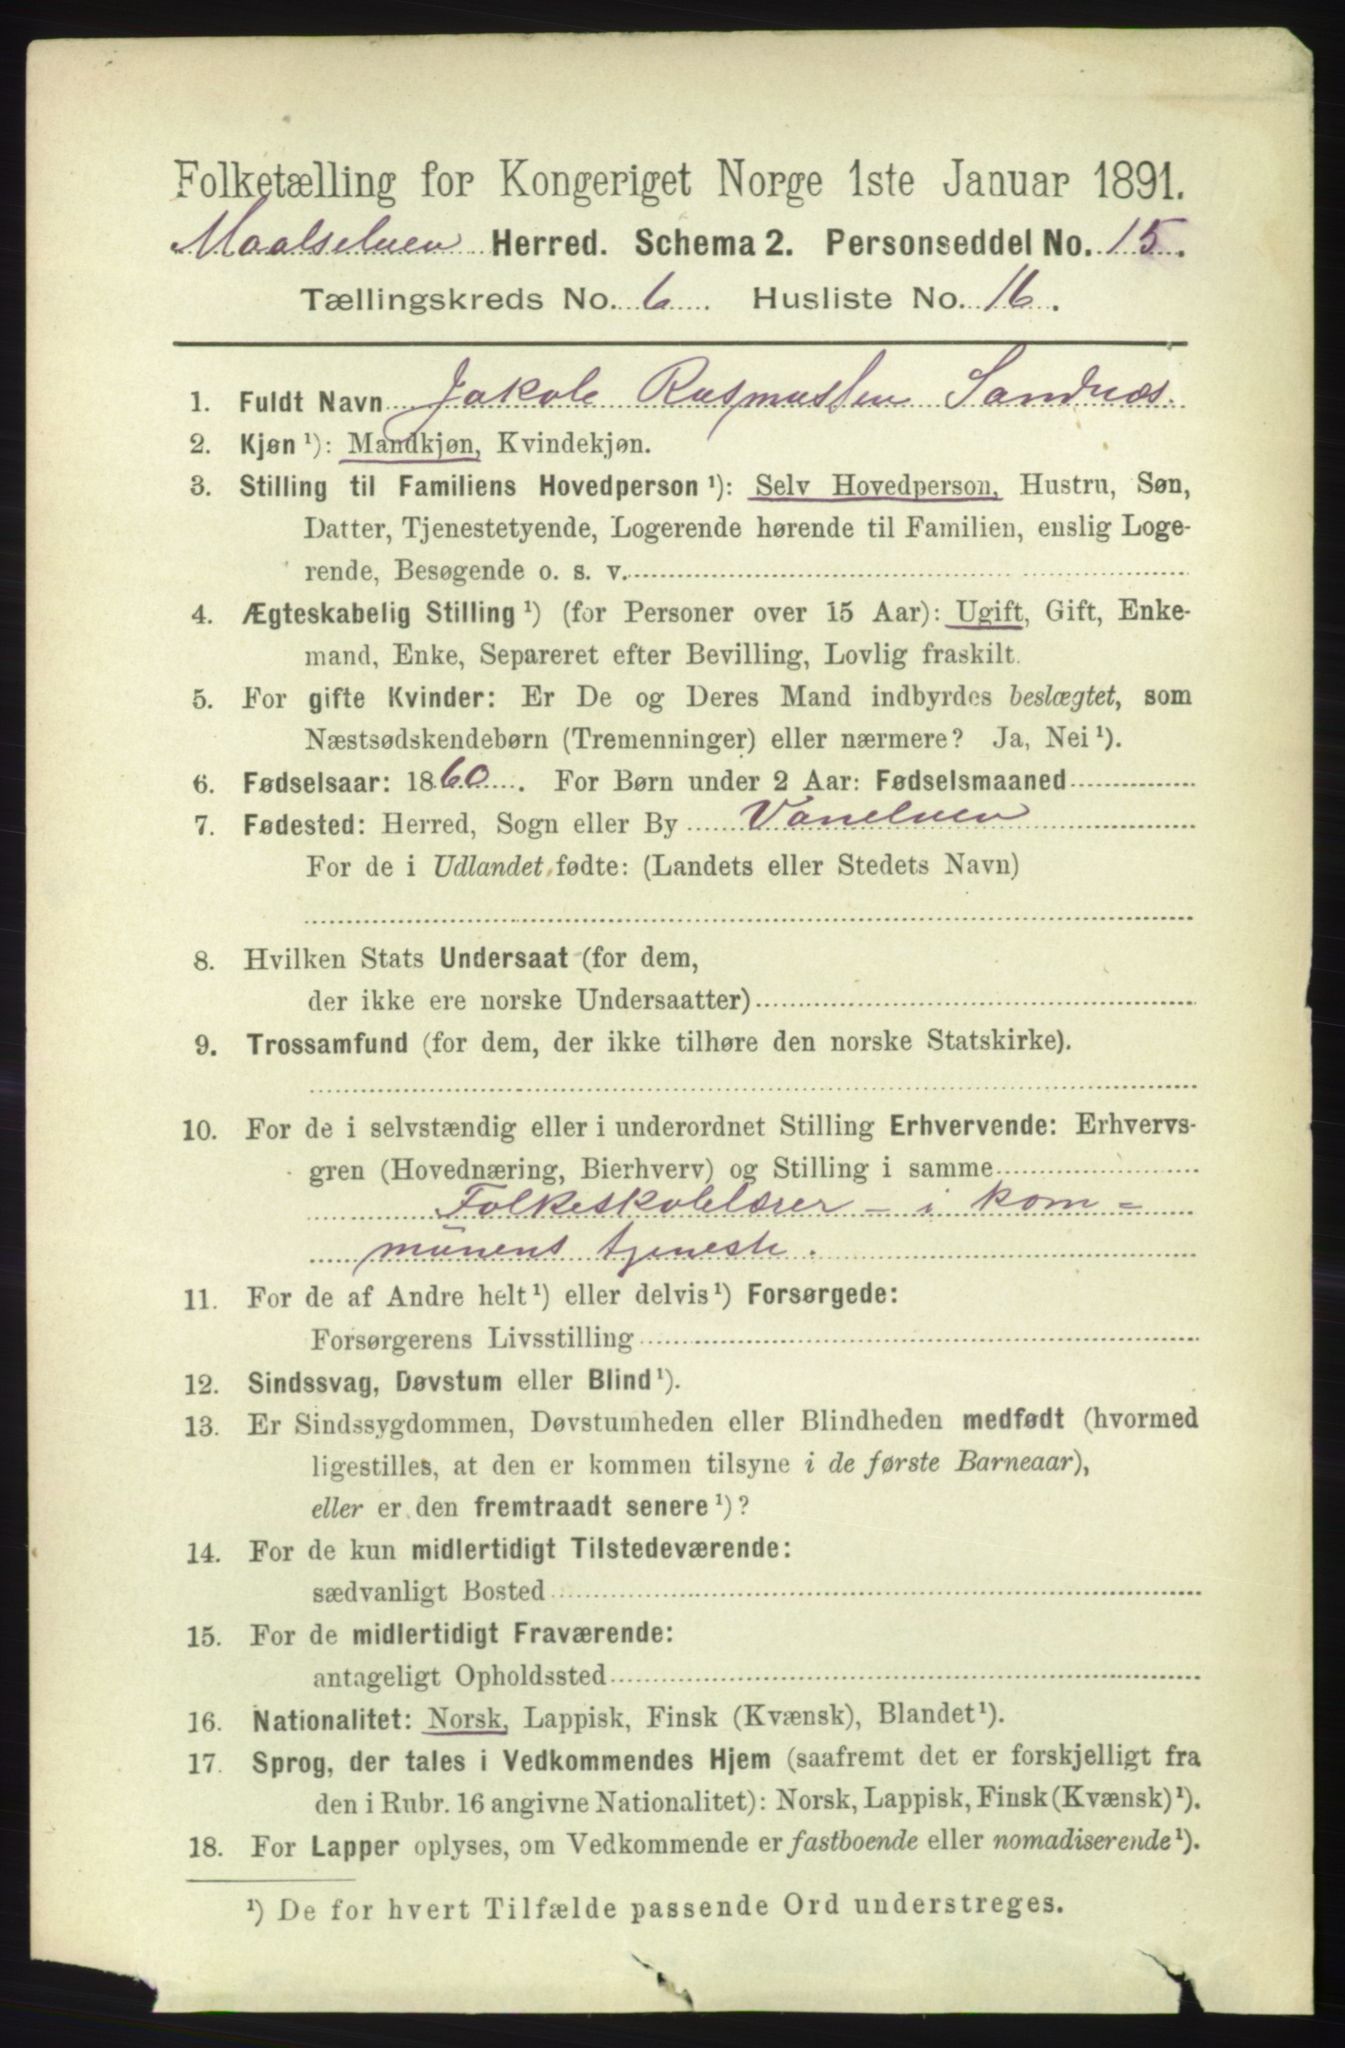 Folketælling for Kongeriget Norge 1ste Januar 1891.
Maalselven Herred. Schema 2. Personseddel No. 15.
Tællingskreds No. 6. Husliste No. 16.
1. Fuldt Navn Jakob Rasmussen Sandnæs
2. Kjøn ¹): Mandkjøn, Kvindekjøn.
3. Stilling til Familiens Hovedperson ¹): Selv Hovedperson, Hustru, Søn,
Datter, Tjenestetyende, Logerende hørende til Familien, enslig Loge-
rende, Besøgende o. s. v.
4. Ægteskabelig Stilling ¹) (for Personer over 15 Aar): Ugift, Gift, Enke-
mand, Enke, Separeret efter Bevilling, Lovlig fraskilt.
5. For gifte Kvinder: Er De og Deres Mand indbyrdes beslægtet, som
Næstsødskendebørn (Tremenninger) eller nærmere? Ja, Nei ¹).
6. Fødselsaar: 1860. For Børn under 2 Aar: Fødselsmaaned
7. Fødested: Herred, Sogn eller By Vanelven
For de i Udlandet fødte: (Landets eller Stedets Navn)
8. Hvilken Stats Undersaat (for dem,
der ikke ere norske Undersaatter)
9. Trossamfund (for dem, der ikke tilhøre den norske Statskirke).
10. For de i selvstændig eller i underordnet Stilling Erhvervende: Erhvervs-
gren (Hovednæring, Bierhverv) og Stilling i samme
Folkeskolelærer - i kom=
munens tjeneste.
11. For de af Andre helt ¹) eller delvis ¹) Forsørgede:
Forsørgerens Livsstilling
12. Sindssvag, Døvstum eller Blind ¹).
13. Er Sindssygdommen, Døvstumheden eller Blindheden medfødt (hvormed
ligestilles, at den er kommen tilsyne i de første Barneaar),
eller er den fremtraadt senere ¹)?
14. For de kun midlertidigt Tilstedeværende:
sædvanligt Bosted
15. For de midlertidigt Fraværende:
antageligt Opholdssted
16. Nationalitet: Norsk, Lappisk, Finsk (Kvænsk), Blandet ¹).
17. Sprog, der tales i Vedkommendes Hjem (saafremt det er forskjelligt fra
den i Rubr. 16 angivne Nationalitet): Norsk, Lappisk, Finsk (Kvænsk) ¹).
18. For Lapper oplyses, om Vedkommende er fastboende eller nomadiserende ¹).
¹) De for hvert Tilfælde passende Ord understreges.